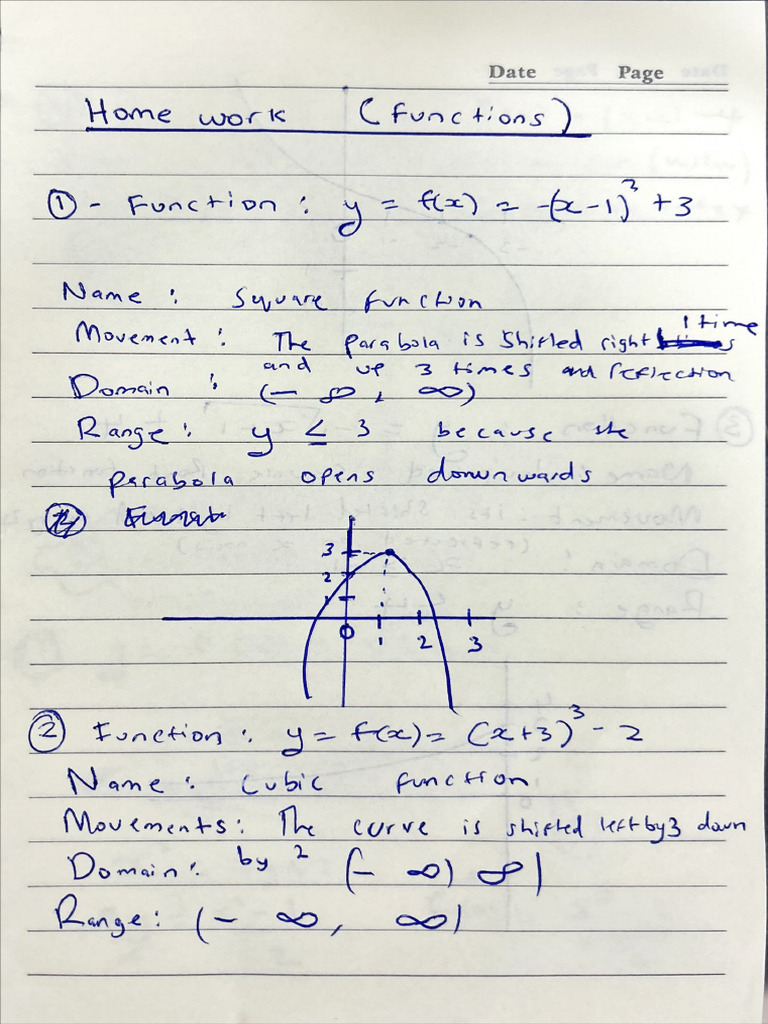 Date Page
Home work (functions)
① - Function : y = f(x) = -(x-1)² + 3
Name : Square function
Movement : The parabola is shifted right 1 time
and up 3 times and reflection
Domain : (- ∞ , ∞)
Range : y ≤ 3 because the
parabola opens downwards
3
2
1
0 1 2 3
② Function : y = f(x) = (x+3)³ - 2
Name : Cubic function
Movements : The curve is shifted left by 3 down
by 2
Domain : (- ∞) ∞)
Range : (- ∞, ∞)